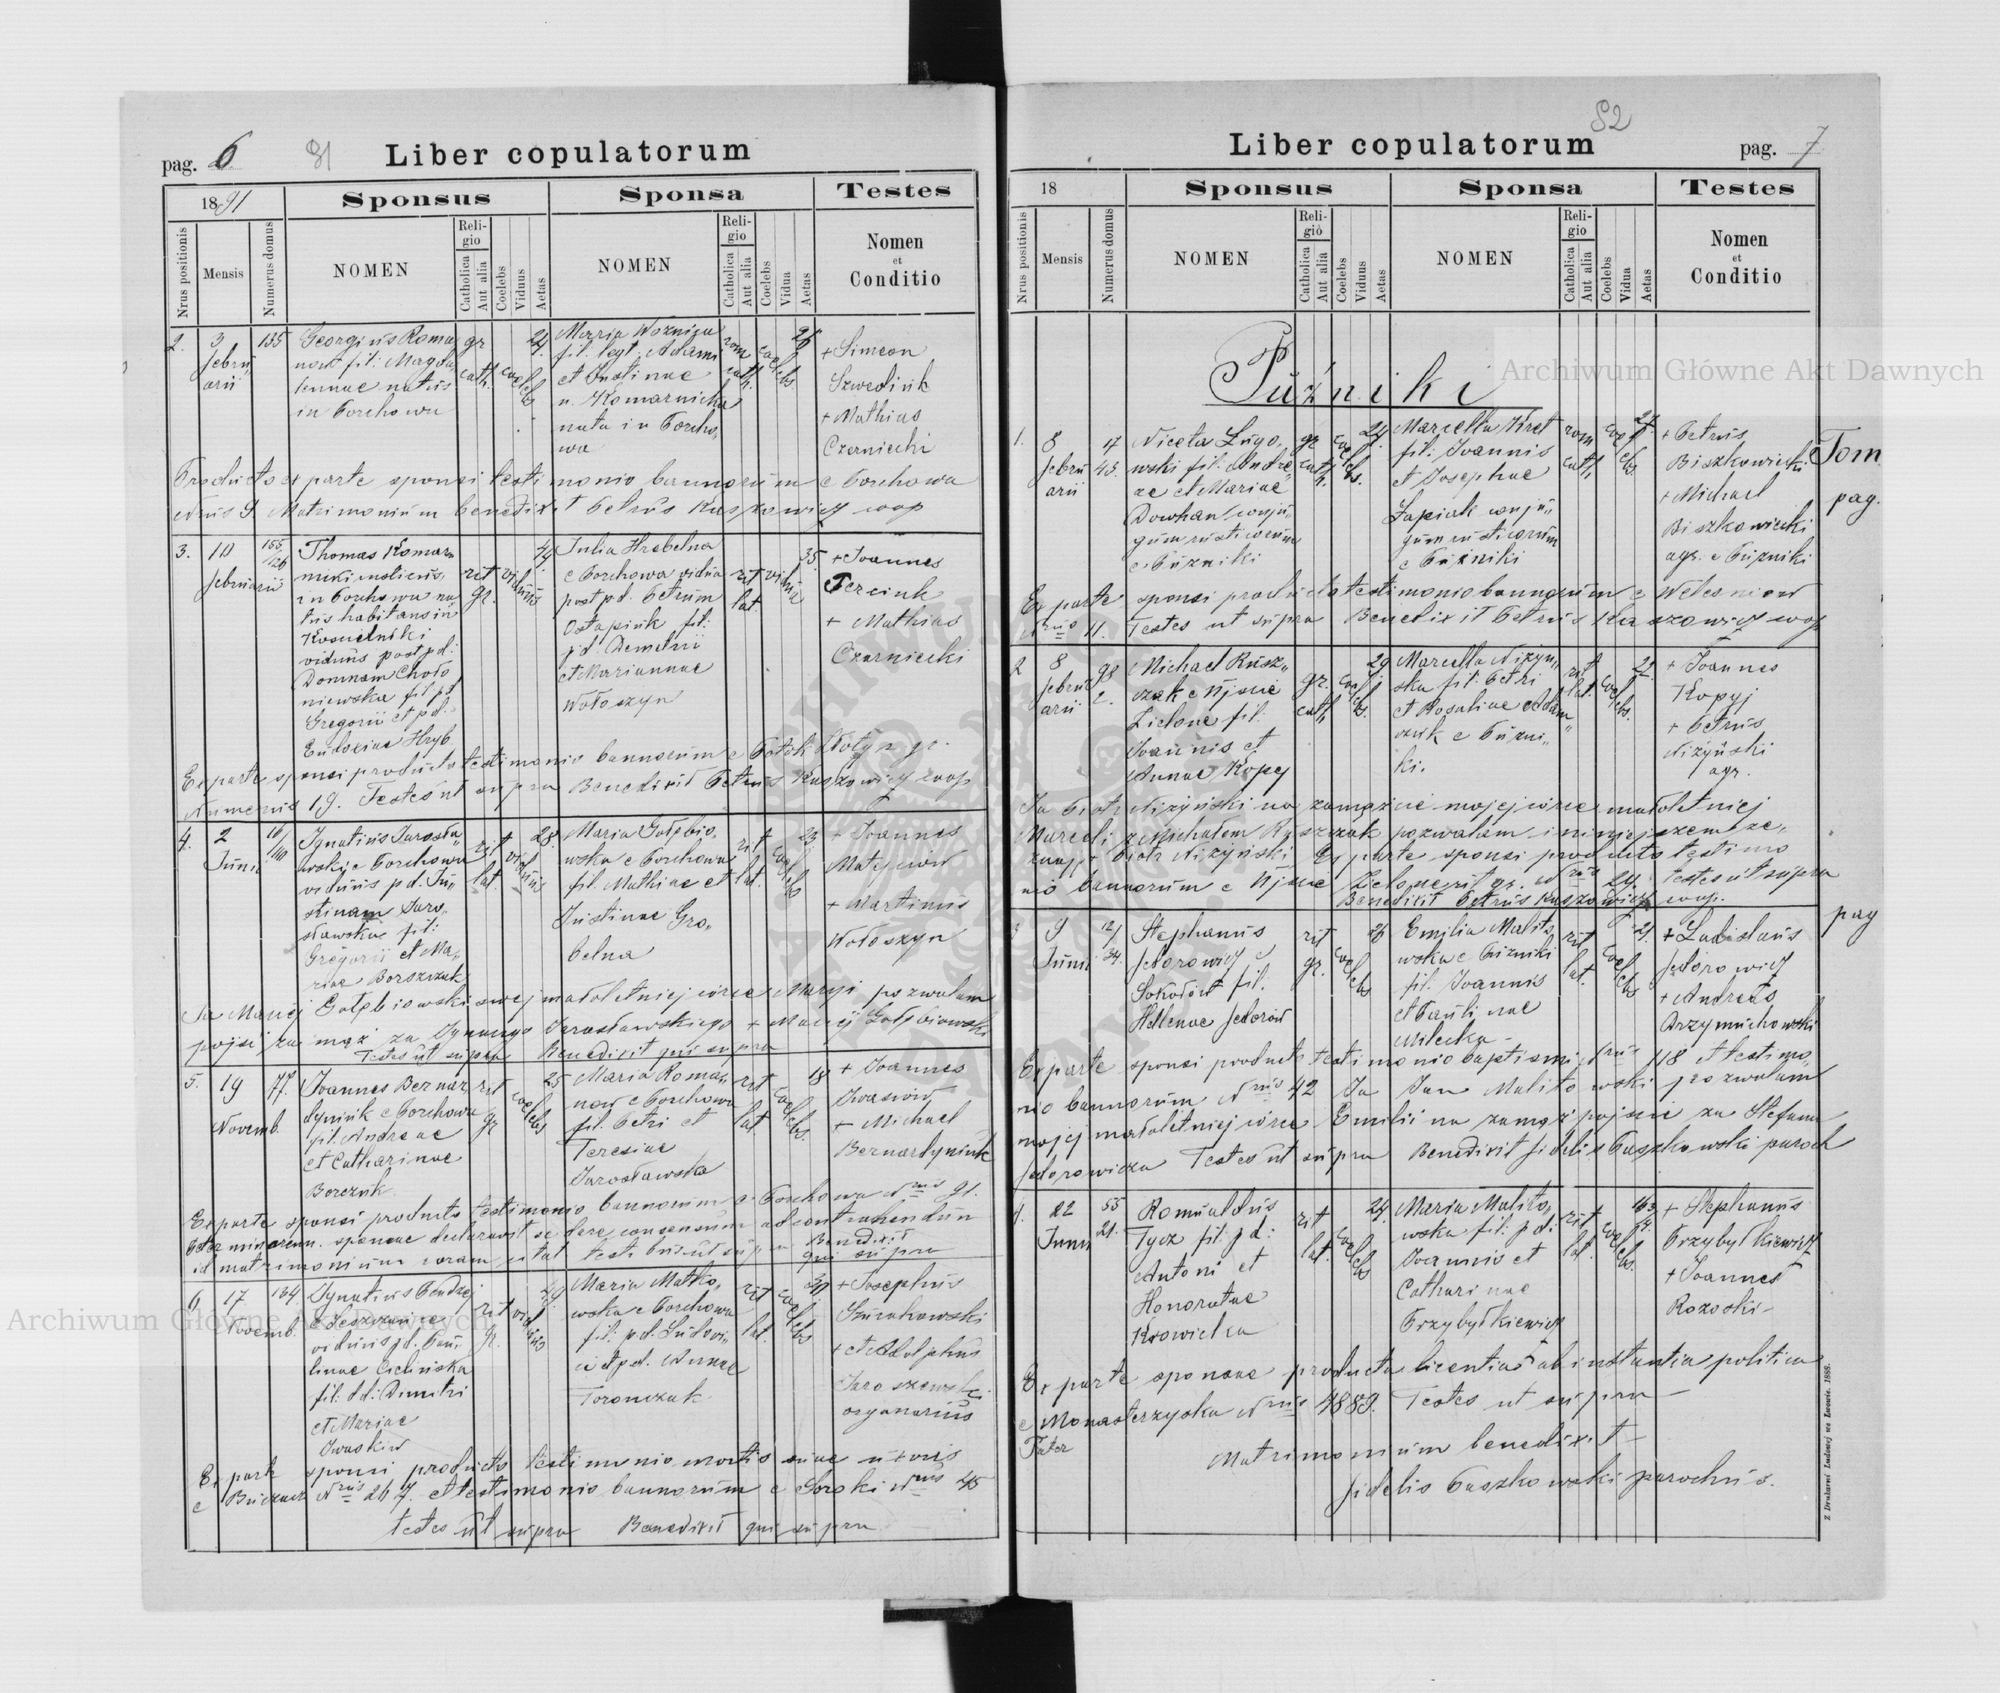 pag. 6 81 Liber copulatorum
1891 Sponsus Sponsa Testes
Nrus positionis Mensis Numerus domus NOMEN Religio Catholica Aut alia Coelebs Viduus Aetas NOMEN Religio Catholica Aut alia Coelebs Vidua Aetas Nomen et Conditio
2. 3 februarii 135
Georgius Roma
now fil: Magda
lennae natus
in Porchowa
gr cath. coelebs 24
Maria Woznica
fil. legt. Adami
et Justinae
n. Komarnicka
nata in Porcho,
wa
rom cath. coelebs 26
+ Simeon
Szwediuk
+ Mathias
Czerniecki
Producto ex parte sponsi testimonio bannorum e Porchowa
Nrus 9. Matrimonium benedixit Petrus Kaszowicz coop
3. 10 februarii 155/126
Thomas Komar
nicki
in Porchowa na
tus habitans in
Koscielniki
viduus post pd:
Domnam Choło
niewska fil pd
Gregorii et pd.
Eudoxiae Hryb
rit gr. viduus 44
Julia Hrabelna
e Porchowa vidua
post pd. Petrum
Ostapiuk fil:
pd. Demetrii
et Mariannae
Wołoszyn
rit lat. vidua 35
+ Joannes
+ Mathias
Czarniecki
Ex parte sponsi producto testimonio bannorum e Potok Złoty gr.
Numerus 19. Testes ut supra Benedixit Petrus Kaszowicz coop
4. 2 Junii
Ignatius Jarosła
wski e Porchowa
viduus pd. Ju
stinam Jaro,
sławska fil:
Gregorii et Ma,
riae Borszczuk
rit lat. viduus 28.
Maria Gołębio,
wska e Porchowa
fil. Mathiae et
Justinae Gro,
belna
rit lat. coelebs 23
+ Joannes
Matysiów
+ Martinus
Wołoszyn
Ja Maciej Gołębiowski swej małoletniej córce Maryi pozwalam
pojść za mąż za Ignacego Jarosławskiego + Maciej Gołębiowski
Testes ut supra Benedixit qui supra
5. 19 Novemb. 77.
Joannes Bernar,
dyniuk e Porchowa
fil. Andreae
et Catharinae
Borczuk
rit gr coelebs 25
Maria Roma,
now e Porchowa
fil. Petri et
Teresiae
Jarosławska
rit lat. coelebs. 18
+ Joannes
Iwasiów
+ Michael
Bernardyniuk
Ex parte sponsi producto testimonio bannorum e Porchowa Nrus 91.
Pater minorenn. sponsae declaravit se dare consensum ad contrahendum
id matrimonium coram testibus ut supra Benedixit
qui supra
6. 17 Novemb. 134
Ignatius
e Leszczańce
viduus pd. Pau,
linae Cielińska
fil. dd: Dimitri
et Mariae
Iwaskiw
rit gr. viduus 49
Maria Matko,
wska e Porchowa
fil: pd. Ludovi,
ci et pd. Annae
Toronczak
rit lat. coelebs 30
+ Josephus
+ Adolphus
Jaroszewski
organarius
Ex parte sponsi producto testimonio mortis suae uxoris
e Buczacz Nrus 267. et testimonio bannorum e Soroki Nrus 45
testes ut supra Benedixit qui supra
82 Liber copulatorum pag. 7
18 Sponsus Sponsa Testes
Nrus positionis Mensis Numerus domus NOMEN Religio Catholica Aut alia Coelebs Viduus Aetas NOMEN Religio Catholica Aut alia Coelebs Vidua Aetas Nomen et Conditio
Puźniki
1. 8 februarii 17 43.
Niceta Ługo,
wski fil. Andre,
ae et Mariae
Dowhan conju,
gum rusticorum
e Puzniki
gr. cath. coelebs. 24
Marcella Kret
fil: Joannis
et Josephae
Łapiak conju,
gum rusticorum
e Puźniki
rom cath. coelebs. 27.
+ Petrus
Biszkowiecki
+ Michael
Biszkowiecki
agr. e Puzniki
Tom.
pag.
Ex parte sponsi producto testimonio bannorum e Welesniow
Nrus 11. Testes ut supra Benedixit Petrus Kaszowicz coop
2 8 februarii 98 2.
Michael Rusz,
czak e Ujscie
Zielone fil.
Joannis et
Annae Kopey
gr. cath coelebs. 29
Marcella Nizyn,
ska fil. Petri
et Rosaliae Adam
czuk e Puzni,
ki.
rit lat. coelebs. 22
+ Joannes
Kopyj
+ Petrus
Niżyński
agr.
Ja Piotr Niżyński na zamążiście mojej córce małoletniej
Marceli z Michałem Ruszczak pozwalam i niniejszem ze,
znaję + Piotr Niżyński, Ex parte sponsi producto testimo
nio bannorum e Ujscie Zielone rit gr. Nrus 24. testes ut supra
Benedixit Petrus Kaszowicz coop.
pag
3 9 Junii 121 34.
Stephanus
fedorowicz e
Sokołów fil.
Hellenae fedorow
rit gr. coelebs 26
Emilia Malito
wska e Puzniki
fil. Joannis
et Paulinae
Milecka -
rit lat. coelebs 21.
+ Ladislaus
fedorowicz
+ Andreas
Drzymuchowski
Ex parte sponsi producto testimonio baptismi, Nrus 118 et testimo
nio bannorum Nrus 42 Ja Jan Malitowski pozwalam
mojej małoletniej córce Emilii na zamąż pojscie za Stefana
fedorowicza Testes ut supra Benedixit fidelis Paszkowski paroch
4. 22 Junii 55 21.
Romualdus
Tycz fil. pd:
Antoni et
Honoratae
Krowicka
rit lat. coelebs 24.
Maria Malito,
wska fil: pd:
Joannis et
Catharinae
Przybyłkiewicz
rit lat. coelebs.
+ Stephanus
Przybyłkiewicz
+ Joannes
Rozoski-
Ex parte sponsae producta licentia ab instantia politica
e Monasterzyska Nrus 4889. Testes ut supra -
Pater
Matrimonium benedixit -
fidelis Paszkowski parochus.
Z Drukarni Ludowej we Lwowie. 1888.
Archiwum Główne Akt Dawnych
Archiwum Główne Akt Dawnych